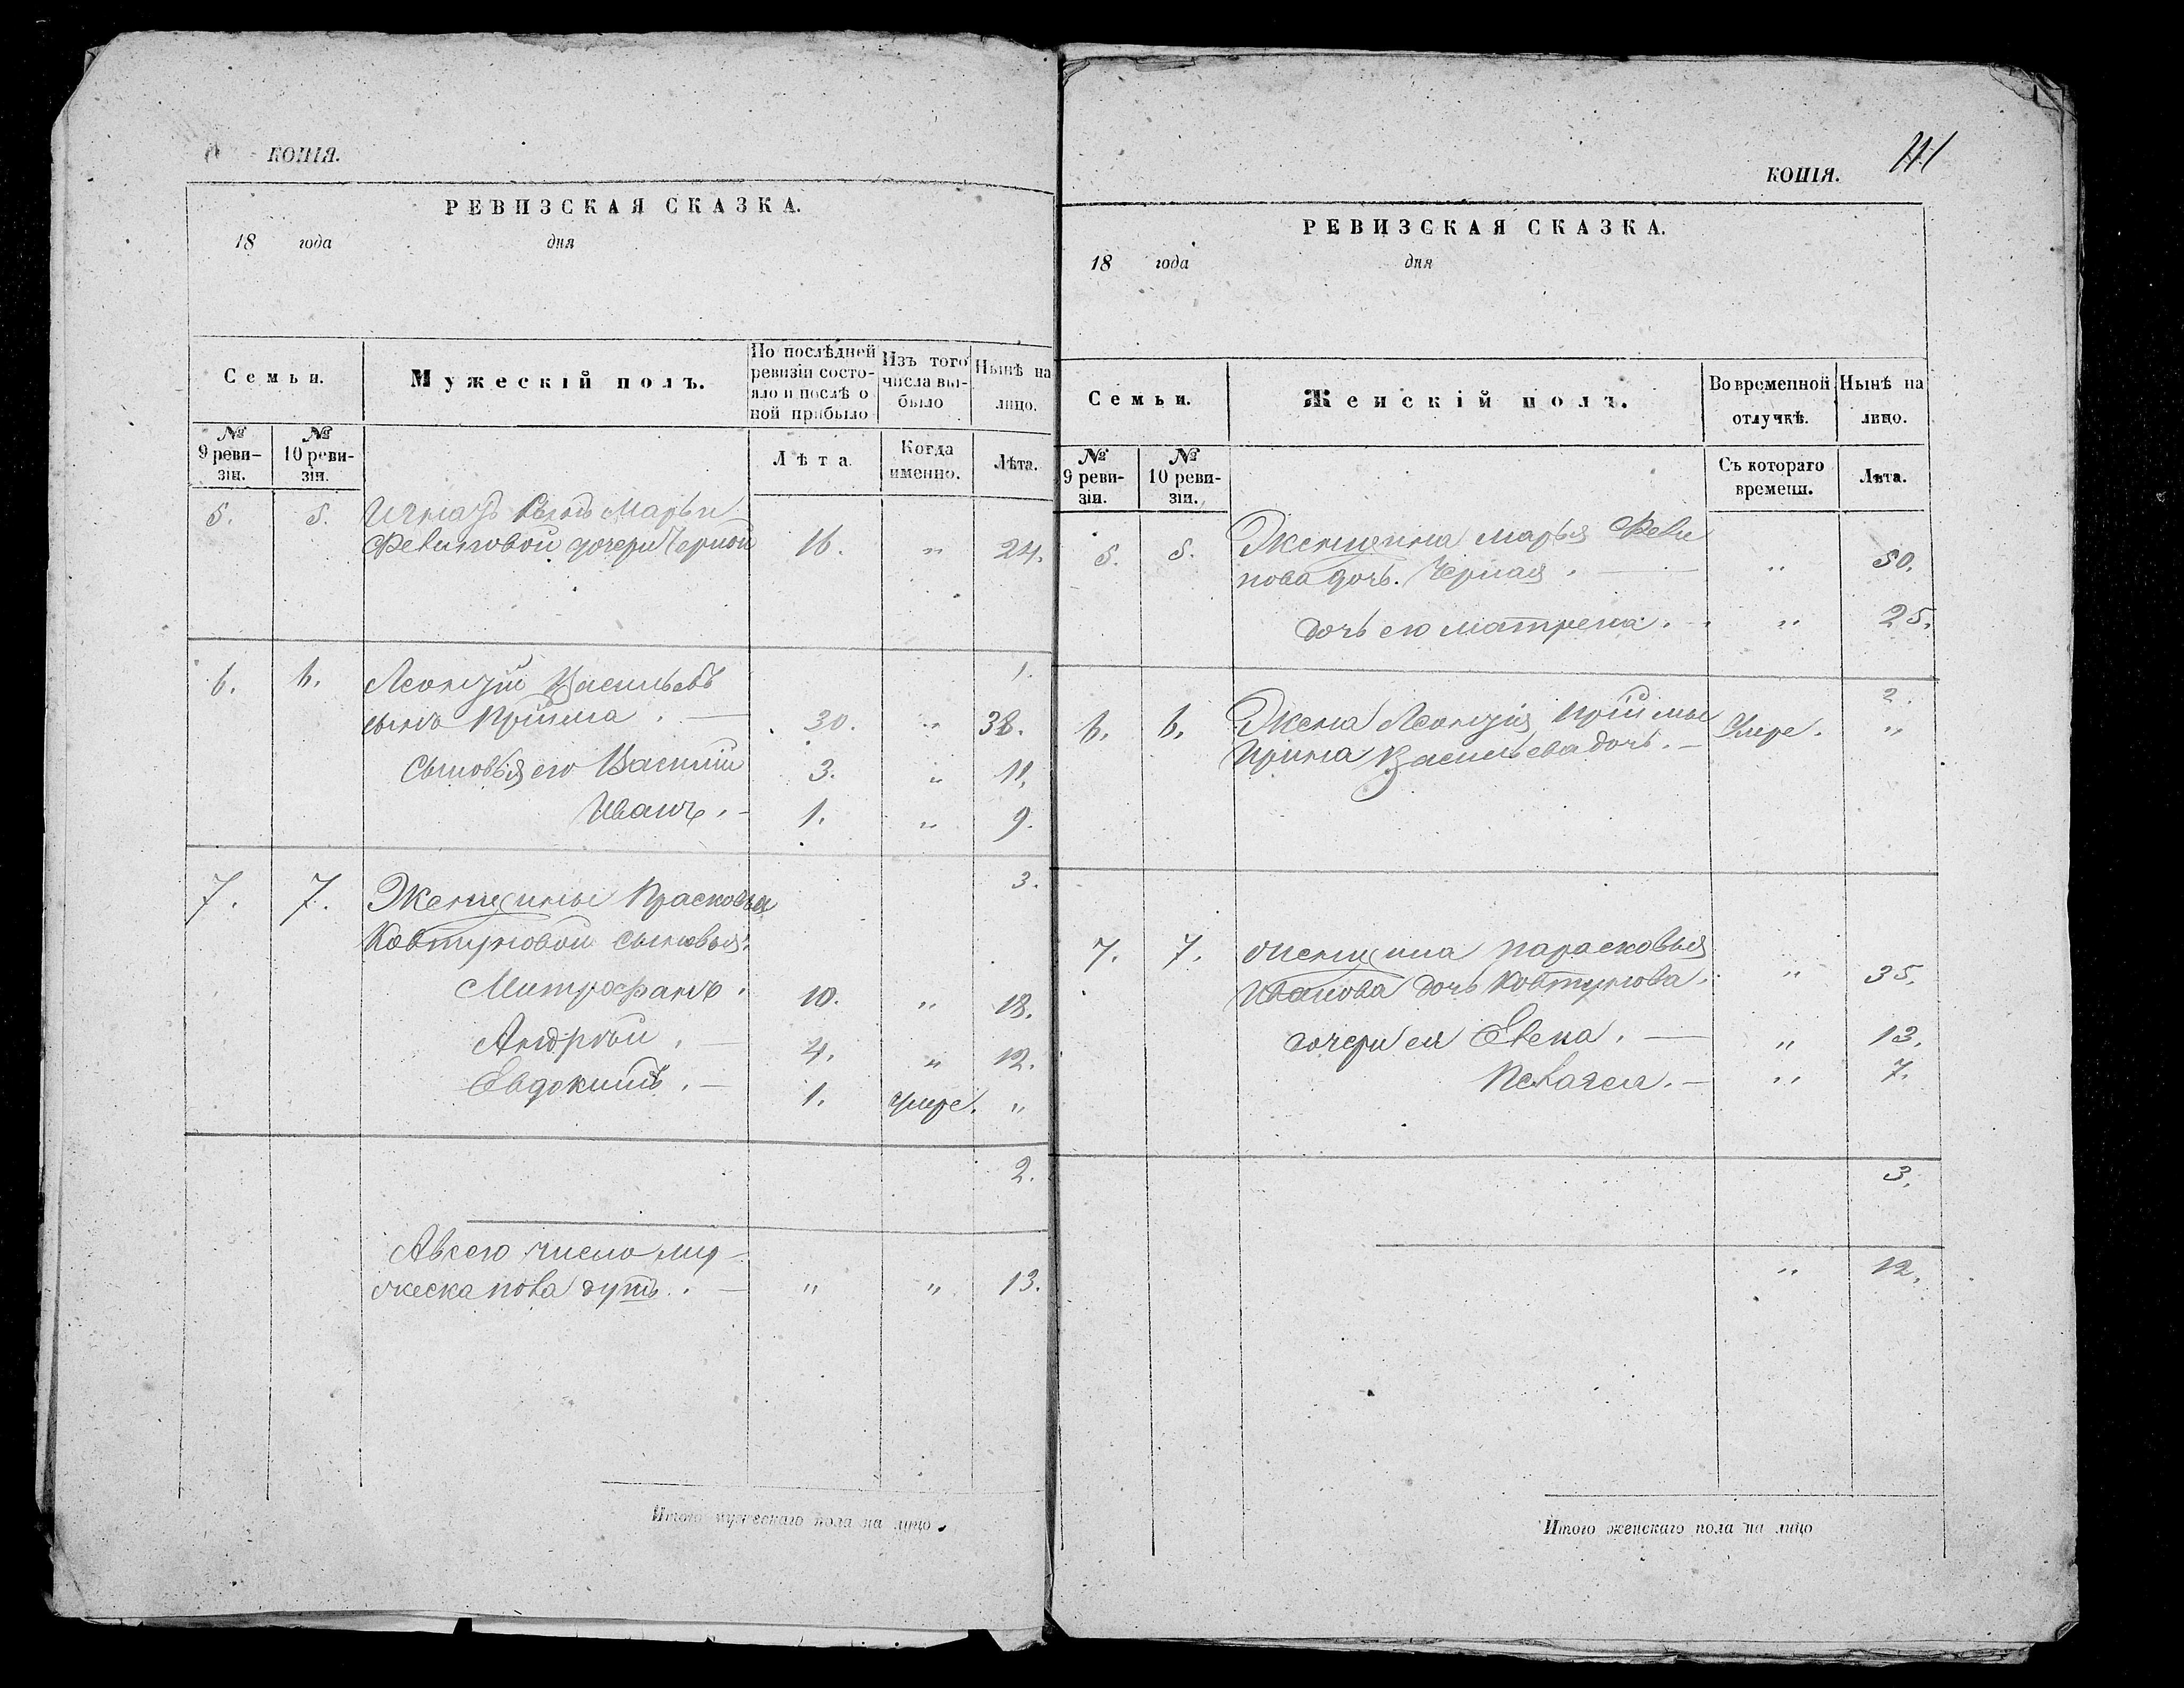 КОПІЯ.
РЕВИЗСКАЯ СКАЗКА.
18 года дня
Семьи.
Мужескій полъ.
По послѣдней ревизіи состо-
яло и послѣ о
ной прибыло
Изъ того
числа вы-
было
Нынѣ на
лицо.
№
9 реви-
зіи.
№
10 реви-
зіи.
Лѣта.
Когда
именно.
Лѣта.
5. 5. Сынъ Марьи
дочери Черной 16. „ 24.
1.
6. 6. Леонтій Васильевъ
сынъ Прійма . — 30. „ 38.
Сыновья его Василій 3. „ 11.
Иванъ. - 1. „ 9.
3.
7. 7. Женщины Прасковьи
Ковтуновой сыновья:
Митрофанъ. 10. „ 18.
Андрѣй . — 4. „ 12.
Евдокимъ. — 1. умре. „
2.
Авсего число му-
жеска пола душъ. — „ „ 13.
Итого мужескаго пола на лицо
111
КОПІЯ.
РЕВИЗСКАЯ СКАЗКА.
18 года дня
Семьи.
Женскій полъ.
Во временной
отлучкѣ.
Нынѣ на
лицо.
№
9 реви-
зіи.
№
10 реви-
зіи.
Съ котораго
времени.
Лѣта.
5. 5. Женщина Марья Фили
пова дочь. Черная . — „ 50.
дочь ею Матрена. - „ 25.
2.
6. 6. Жена Леонтія Приймы умре. „
Ирина Васильева дочь. —
7. 7. Женщина Парасковья
Иванова дочь Ковтунова. „ 35.
дочери ея Елена. — „ 13.
Пелагея. — „ 7.
3.
„ 12.
Итого женскаго пола на лицо